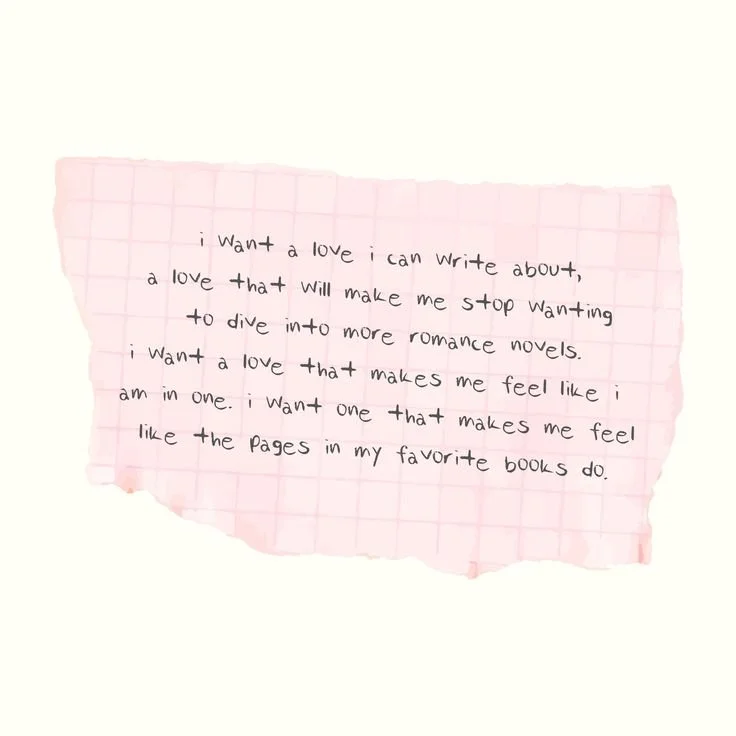 i want a love i can write about,
a love that will make me stop wanting
to dive into more romance novels.
i want a love that makes me feel like i
am in one. i want one that makes me feel
like the pages in my favorite books do.